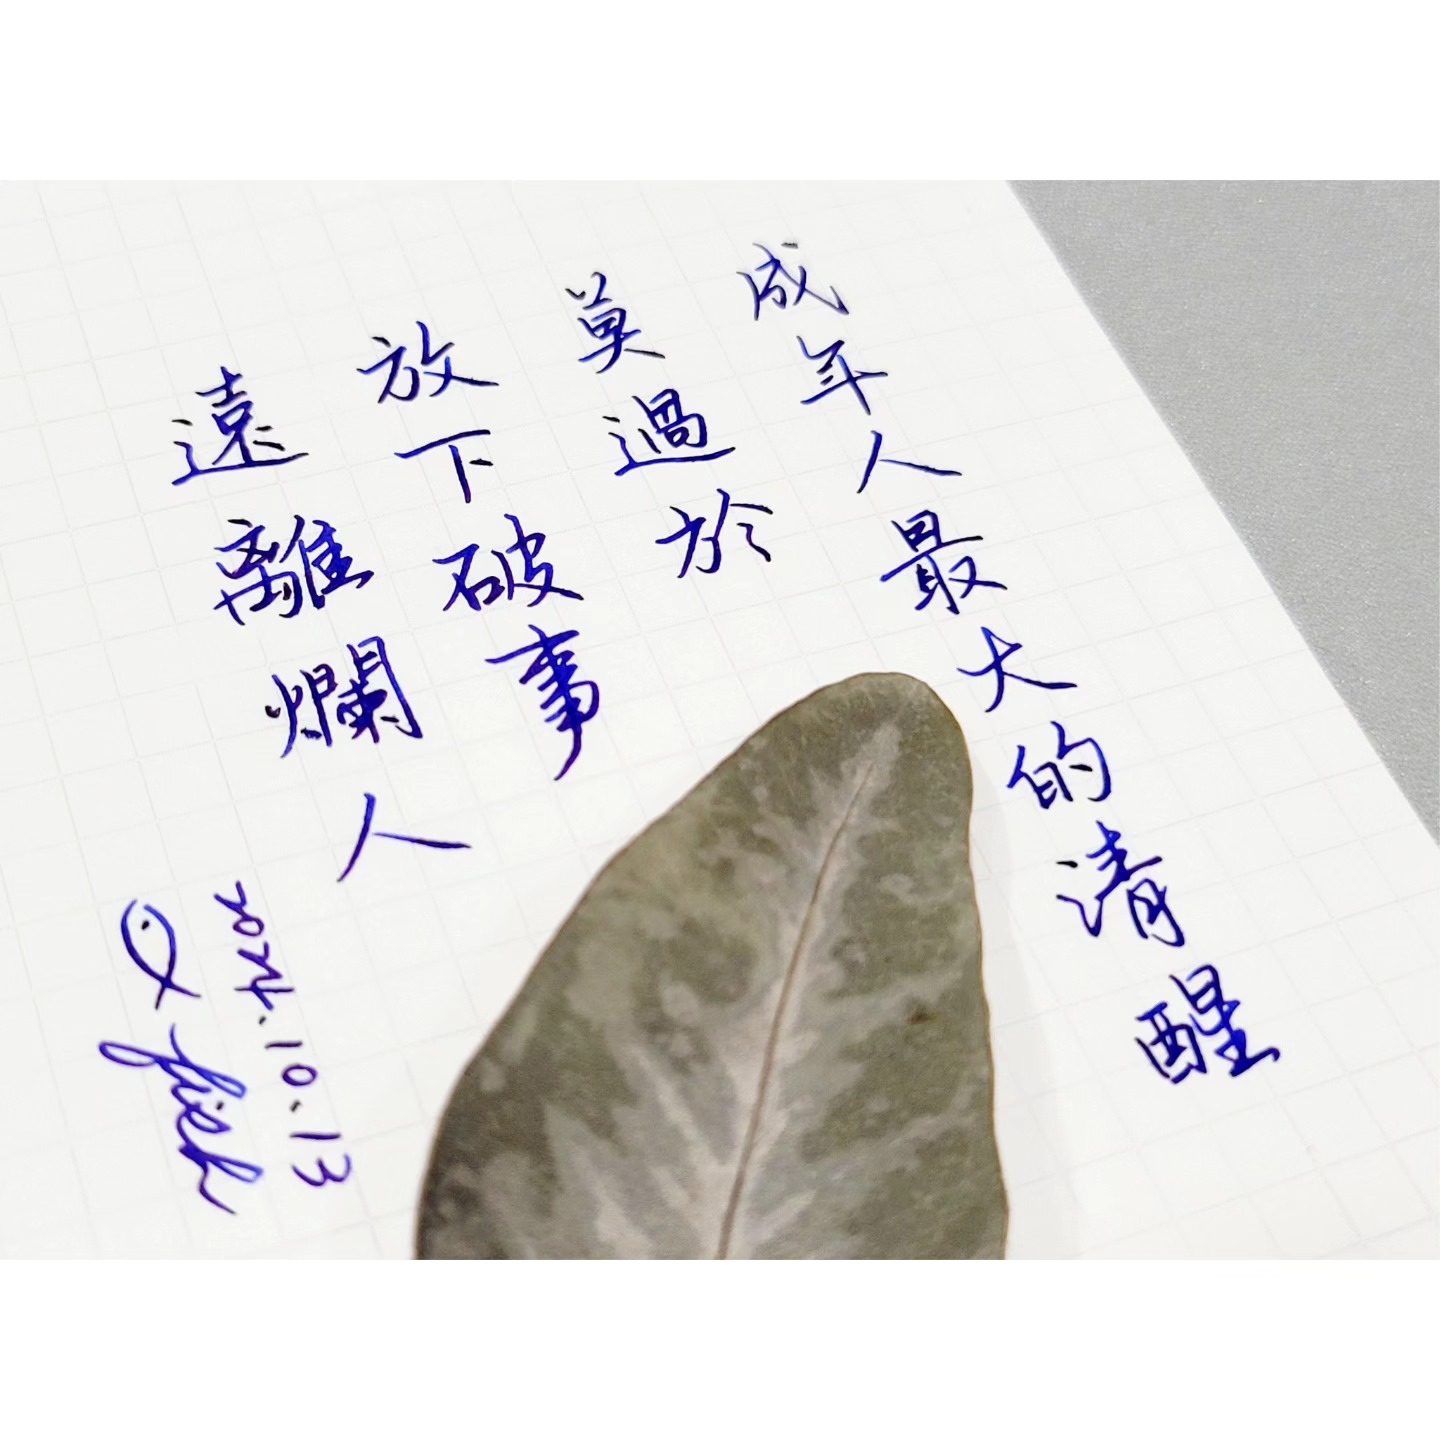 成年人最大的清醒
莫過於
放下破事
遠離爛人
2024.10.13
fish